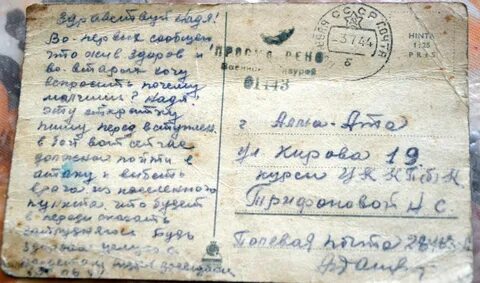 Здравствуй Надя!
Во-первых сообщаю
что жив здоров и
во вторых хочу
спросить почему
молчишь? Надя
эту открытку
пишу перед вступлен.
в бой вот сейчас
должны пойти в
атаку и выбить
врага из населенного
пункта. что будет
впереди сказать
затрудняюсь Будь
здорова целую
СССР ПОЧТА
3.7.44
б
HINTA
1:25
PRIS
ПРОСМОТРЕНО
Военной Цензурой
01443
г Алма-Ата
ул Кирова 19
курсы
Трифоновой Н С.
Полевая почта